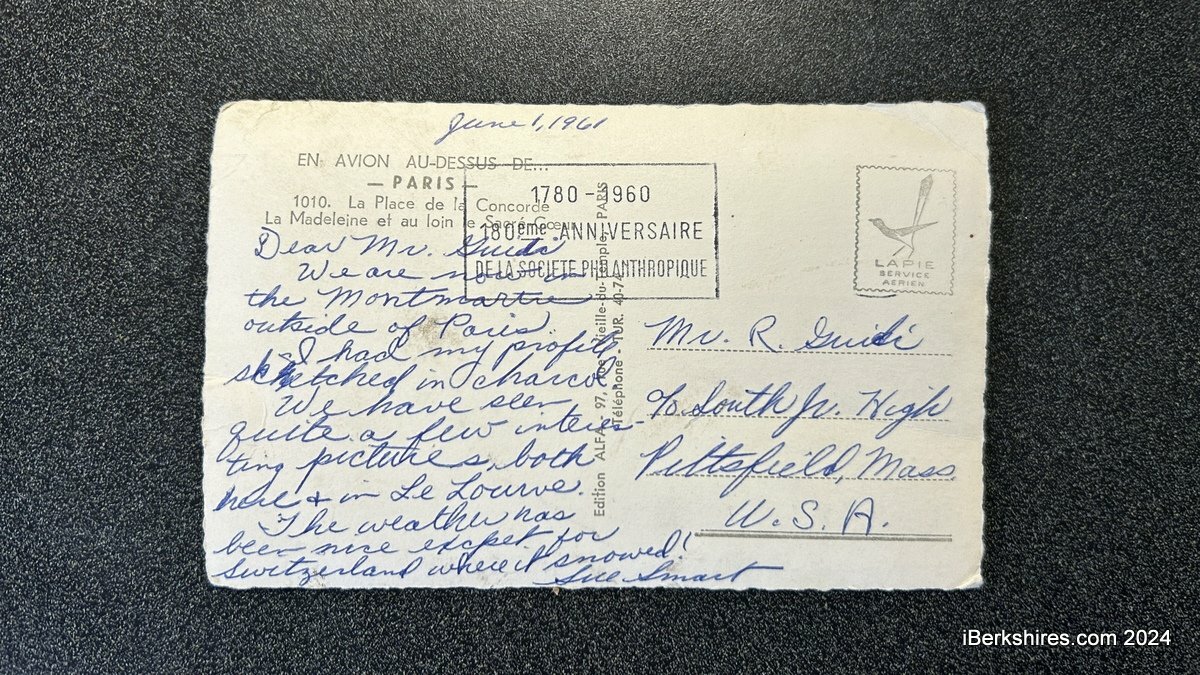 June 1, 1961
EN AVION AU-DESSUS DE...
— PARIS —
1010. La Place de la Concorde
La Madeleine et au loin le Sacré-Cœur
1780 - 1960
180ème ANNIVERSAIRE
DE LA SOCIETE PHILANTHROPIQUE
LAPIE
SERVICE
AERIEN
Dear Mr. Guidi
We are now in
the Montmartre
outside of Paris.
I had my profile
sketched in charcol.
We have seen
quite a few interes-
ting pictures, both
here & in Le Lourve.
The weather has
been nice excpet for
Switzerland where it snowed!
Sue Smart
Edition ALFA - 97, rue Vieille-du-Temple, PARIS
Téléphone - TUR. 40-74
Mr. R. Guidi
c/o South Jr. High
Pittsfield, Mass.
U.S.A.
iBerkshires.com 2024